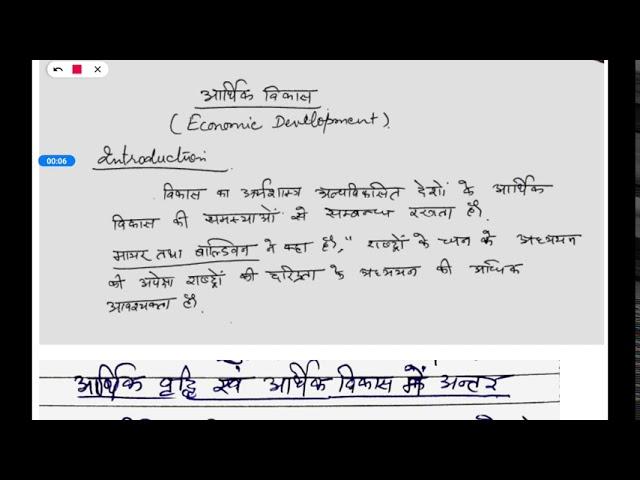 आर्थिक विकास
(Economic Development).
00:06
Introduction
विकास का अर्थशास्त्र अल्पविकसित देशों के आर्थिक
विकास की समस्याओं से सम्बन्ध रखता है।
मायर तथा बाल्डविन ने कहा है," राष्ट्रों के धन के अध्ययन
की अपेक्षा राष्ट्रों की दरिद्रता के अध्ययन की अधिक
आवश्यकता है।
आर्थिक वृद्धि एवं आर्थिक विकास में अन्तर